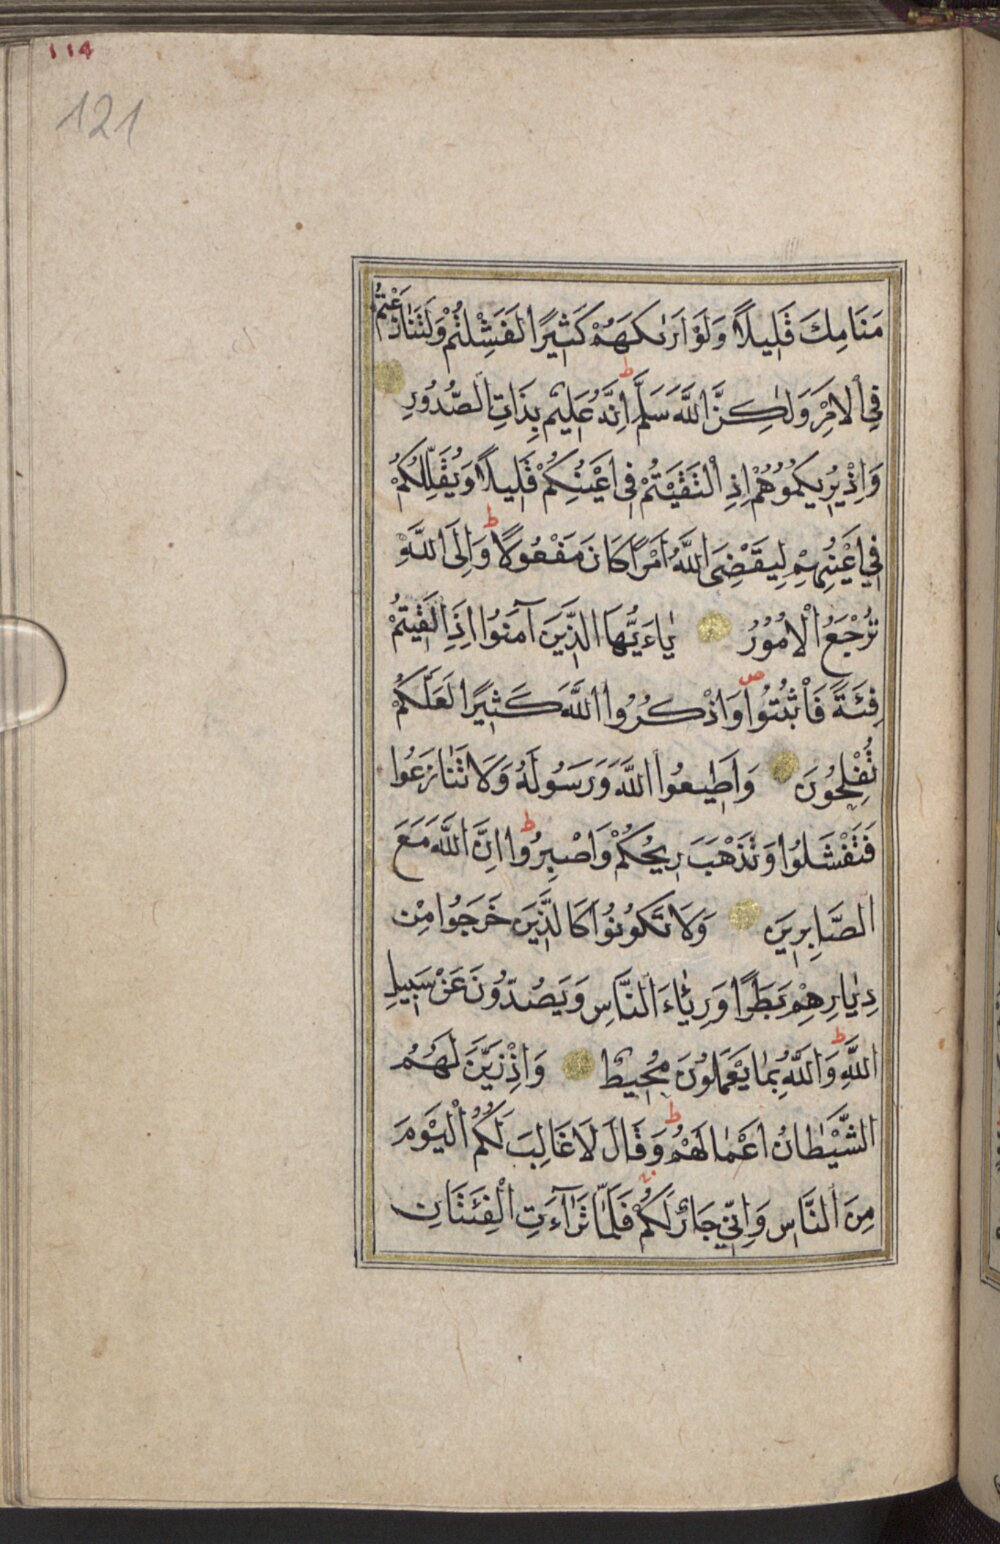 ١١٤
121
مَنَامِكَ قَلِيلًا وَلَوْ اَرٰىكَهُمْ كَثِيرًا لَفَشِلْتُمْ وَلَتَنَازَعْتُمْ
فِي الْاَمْرِ وَلٰكِنَّ اللَّهَ سَلَّمَ ط اِنَّهُ عَلِيمٌ بِذَاتِ الصُّدُورِ
وَاِذْ يُرِيكُمُوهُمْ اِذِ الْتَقَيْتُمْ فِي اَعْيُنِكُمْ قَلِيلًا وَيُقَلِّلُكُمْ
فِي اَعْيُنِهِمْ لِيَقْضِيَ اللَّهُ اَمْرًا كَانَ مَفْعُولًا ط وَاِلَى اللَّهِ
تُرْجَعُ الْاُمُورُ يٰاءَيُّهَا الَّذِينَ آمَنُوا اِذَا لَقِيتُمْ
فِئَةً فَاثْبُتُوا ص وَاذْكُرُوا اللَّهَ كَثِيرًا لَعَلَّكُمْ
تُفْلِحُونَ وَاَطِيعُوا اللَّهَ وَرَسُولَهُ وَلَا تَنَازَعُوا
فَتَفْشَلُوا وَتَذْهَبَ رِيحُكُمْ وَاصْبِرُوا ط اِنَّ اللَّهَ مَعَ
الصَّابِرِينَ وَلَا تَكُونُوا كَالَّذِينَ خَرَجُوا مِنْ
دِيَارِهِمْ بَطَرًا وَرِيَاءَ النَّاسِ وَيَصُدُّونَ عَنْ سَبِيلِ
اللَّهِ ط وَاللَّهُ بِمَا يَعْمَلُونَ مُحِيطٌ وَاِذْ زَيَّنَ لَهُمُ
الشَّيْطَانُ اَعْمَالَهُمْ ط وَقَالَ لَا غَالِبَ لَكُمُ الْيَوْمَ
مِنَ النَّاسِ وَاِنِّي جَارٌ لَكُمْ فَلَمَّا تَرَآءَتِ الْفِئَتَانِ